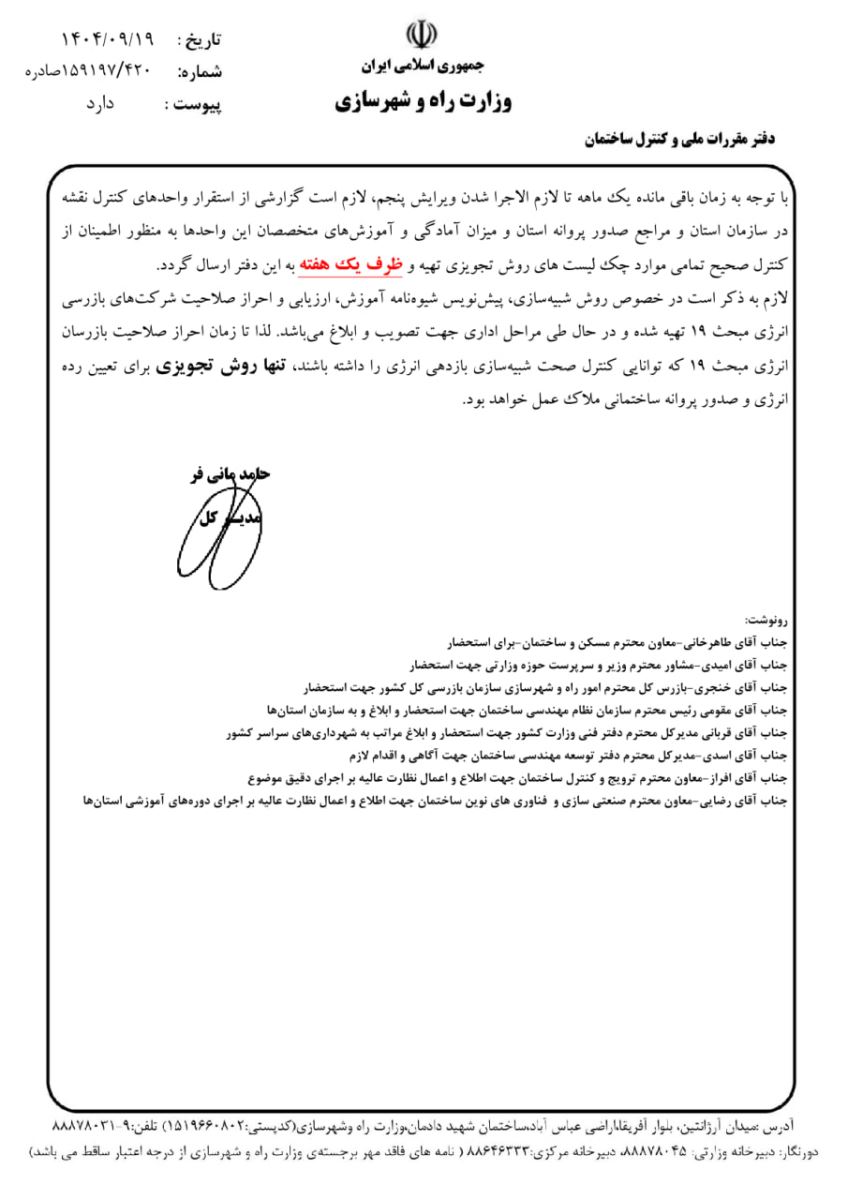 جمهوری اسلامی ایران
وزارت راه و شهرسازی
تاریخ : ۱۴۰۴/۰۹/۱۹
شماره: ۱۵۹۱۹۷/۴۲۰صادره
پیوست : دارد
دفتر مقررات ملی و کنترل ساختمان
با توجه به زمان باقی مانده یک ماهه تا لازم الاجرا شدن ویرایش پنجم، لازم است گزارشی از استقرار واحدهای کنترل نقشه
در سازمان استان و مراجع صدور پروانه استان و میزان آمادگی و آموزش‌های متخصصان این واحدها به منظور اطمینان از
کنترل صحیح تمامی موارد چک لیست های روش تجویزی تهیه و ظرف یک هفته به این دفتر ارسال گردد.
لازم به ذکر است در خصوص روش شبیه‌سازی، پیش‌نویس شیوه‌نامه آموزش، ارزیابی و احراز صلاحیت شرکت‌های بازرسی
انرژی مبحث ۱۹ تهیه شده و در حال طی مراحل اداری جهت تصویب و ابلاغ می‌باشد. لذا تا زمان احراز صلاحیت بازرسان
انرژی مبحث ۱۹ که توانایی کنترل صحت شبیه‌سازی بازدهی انرژی را داشته باشند، تنها روش تجویزی برای تعیین رده
انرژی و صدور پروانه ساختمانی ملاک عمل خواهد بود.
حامد مانی فر
مدیر کل
رونوشت:
جناب آقای طاهرخانی-معاون محترم مسکن و ساختمان-برای استحضار
جناب آقای امیدی-مشاور محترم وزیر و سرپرست حوزه وزارتی جهت استحضار
جناب آقای خنجری-بازرس کل محترم امور راه و شهرسازی سازمان بازرسی کل کشور جهت استحضار
جناب آقای مقومی رئیس محترم سازمان نظام مهندسی ساختمان جهت استحضار و ابلاغ و به سازمان استان‌ها
جناب آقای قربانی مدیرکل محترم دفتر فنی وزارت کشور جهت استحضار و ابلاغ مراتب به شهرداری‌های سراسر کشور
جناب آقای اسدی-مدیرکل محترم دفتر توسعه مهندسی ساختمان جهت آگاهی و اقدام لازم
جناب آقای افراز-معاون محترم ترویج و کنترل ساختمان جهت اطلاع و اعمال نظارت عالیه بر اجرای دقیق موضوع
جناب آقای رضایی-معاون محترم صنعتی سازی و فناوری های نوین ساختمان جهت اطلاع و اعمال نظارت عالیه بر اجرای دوره‌های آموزشی استان‌ها
آدرس :میدان آرژانتین، بلوار آفریقا،اراضی عباس آباد،ساختمان شهید دادمان،وزارت راه وشهرسازی(کدپستی:۱۵۱۹۶۶۰۸۰۲) تلفن:۹-۸۸۸۷۸۰۳۱
دورنگار: دبیرخانه وزارتی: ۸۸۸۷۸۰۴۵، دبیرخانه مرکزی:۸۸۶۴۶۳۳۳ ( نامه های فاقد مهر برجسته‌ی وزارت راه و شهرسازی از درجه اعتبار ساقط می باشد)